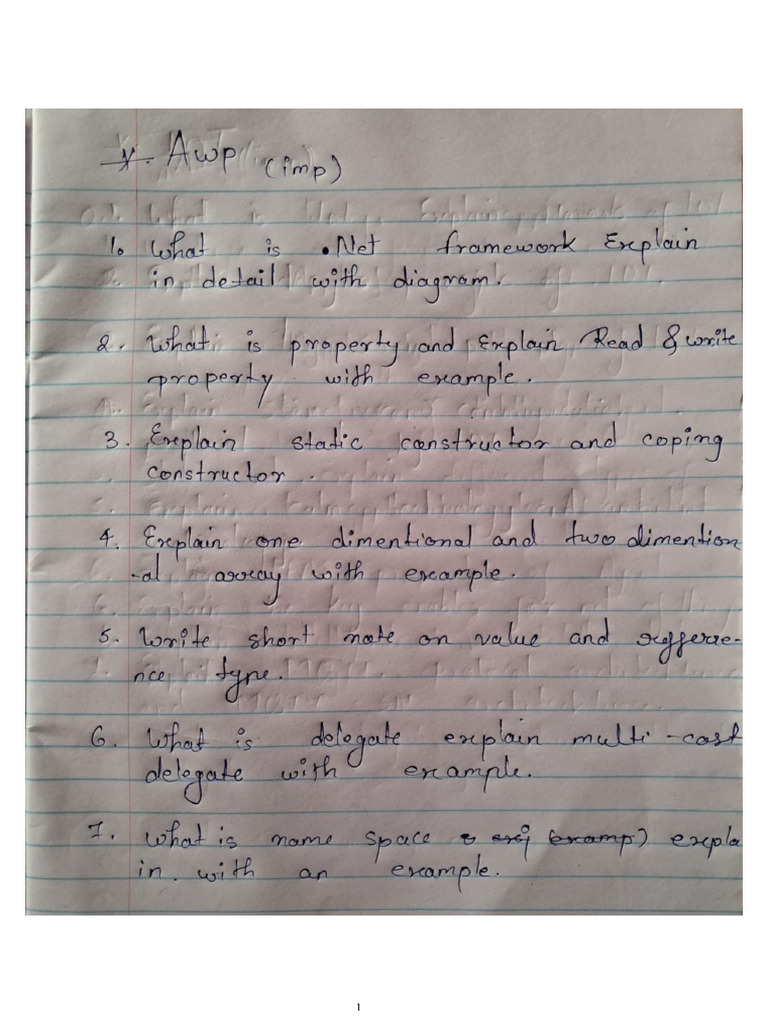 Awp (imp)
1. What is .Net framework Explain
in detail with diagram.
2. What is property and Explain Read & write
property with example.
3. Explain static constructor and coping
constructor.
4. Explain one dimentional and two dimention
-al array with example.
5. Write short note on value and refferre-
nce type.
6. What is delegate explain multi-cast
delegate with example.
7. What is name space expla
in. with an example.
1